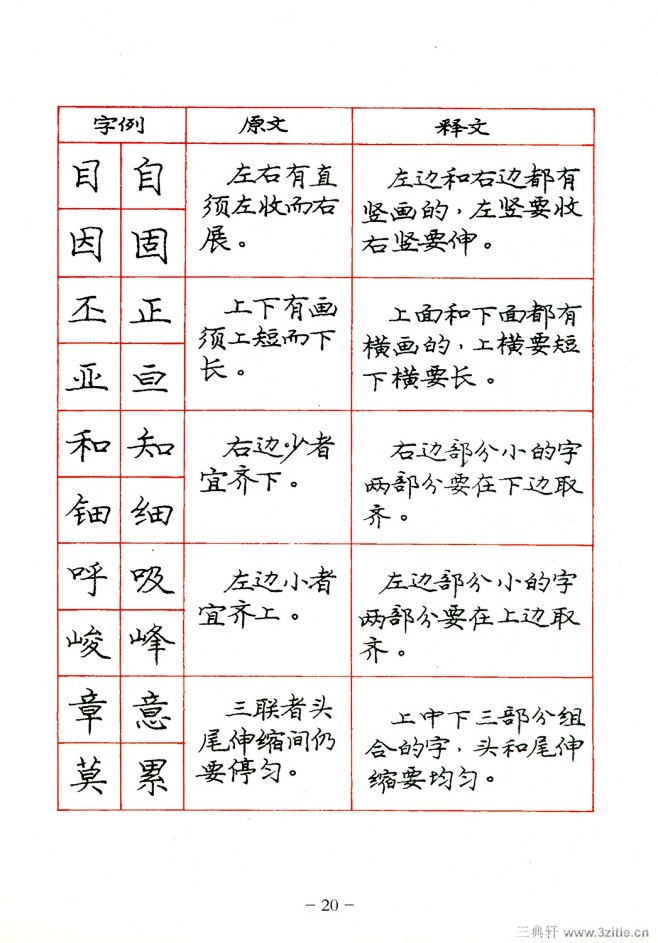 字例 原文 释文
目 自
因 固
左右有直
须左收而右
展。
左边和右边都有
竖画的，左竖要收
右竖要伸。
丕 正
亚 亘
上下有画
须上短而下
长。
上面和下面都有
横画的，上横要短
下横要长。
和 知
钿 细
右边少者
宜齐下。
右边部分小的字
两部分要在下边取
齐。
呼 吸
峻 峰
左边小者
宜齐上。
左边部分小的字
两部分要在上边取
齐。
章 意
莫 累
三联者头
尾伸缩间仍
要停匀。
上中下三部分组
合的字，头和尾伸
缩要均匀。
- 20 -
三典轩 www.3zitie.cn